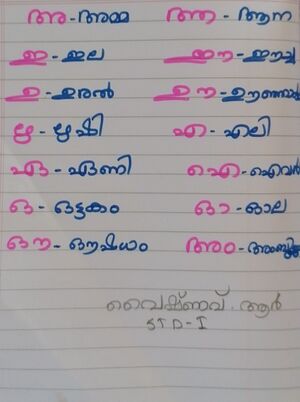 അ - അമ്മ ആ - ആന
ഇ - ഇല ഈ - ഈച്ച
ഉ - ഉരൽ ഊ - ഊഞ്ഞാൽ
ഋ - ഋഷി എ - എലി
ഏ - ഏണി ഐ - ഐവർ
ഒ - ഒട്ടകം ഓ - ഓല
ഔ - ഔഷധം അം - അംബുജം
വൈഷ്ണവ്. ആർ
STD - I